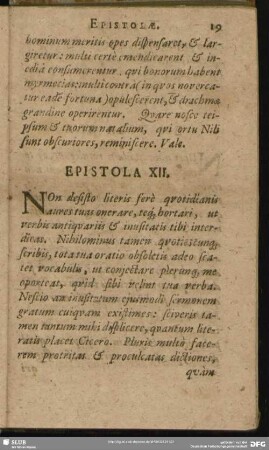 EPISTOLÆ. 19
hominum meritis opes dispensaret, & lar-
giretur: multi certè emendicarent & in-
ediâ consumerentur, qui bonorum habent
myrmecias: multi contrà (in qvos noverca-
tur eadē fortuna) opulescerent, & drachma
grandine operirentur. Qvare nosce te
ipsum & tuorum natalium, qvi ortu Nili
sunt obscuriores, reminiscere. Vale.
EPISTOLA XII.
NOn desisto literis ferè qvotidianis
aures tuas onerare, teq; hortari, ut
verbis antiqvariis & inusitatis tibi inter-
dicas. Nihilominus tamen qvotiescunq;
scribis, tota tua oratio obsoletis adeo sca-
tet vocabulis, ut conjectare plerunq; me
oporteat, qvid sibi velint tua verba.
Nescio an inusitatum ejusmodi sermonem
gratum cuiqvam existimes: sciveris ta-
men tantum mihi displicere, qvantum lite-
ratis placet Cicero. Pluris multò face-
rem protritas & proculcatas dictiones,
qvàm
SLUB
DFG